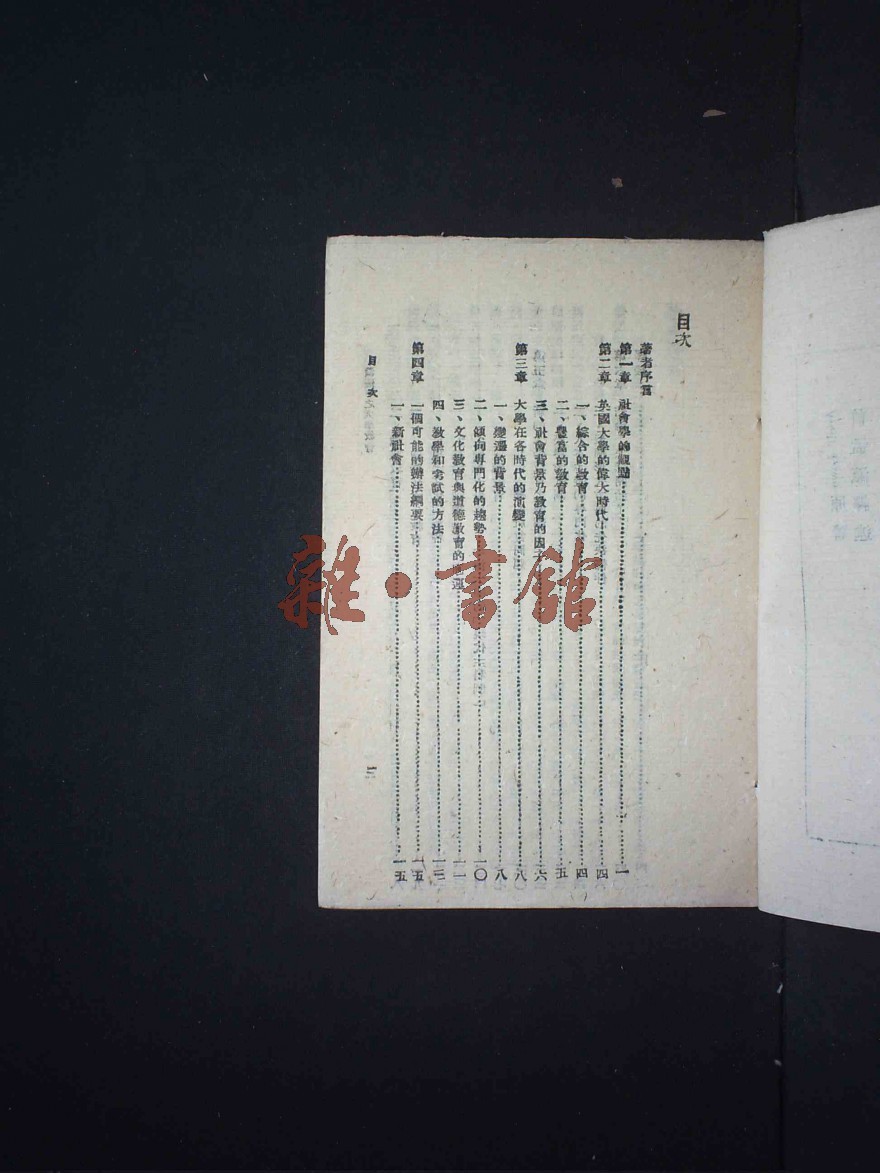 目次
著者序言
第一章 社會學的觀點……一
第二章 英國大學的偉大時代……四
一、綜合的教育……四
二、豐富的教育……五
三、社會背景乃教育的因子……六
第三章 大學在各時代的演變……八
一、變遷的背景……八
二、傾向專門化的趨勢……一〇
三、文化教育與道德教育的……一一
四、教學和考試的方法……一三
第四章 一個可能的辦法綱要……一五
一、新社會……一五
目次
雜·書館